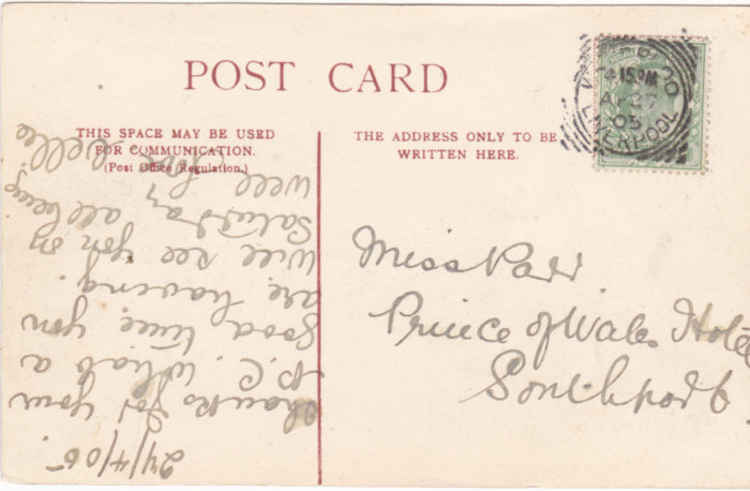 POST CARD
THIS SPACE MAY BE USED
FOR COMMUNICATION.
(Post Office Regulation.)
THE ADDRESS ONLY TO BE
WRITTEN HERE.
4 15 PM
AP 27
05
LIVERPOOL
Miss Parr
Prince of Wales Hotel
Southport
27/4/05.
Thanks for your
P.C. What a
good time you
are having.
Will see you on
Saturday all being
well Love Nellie